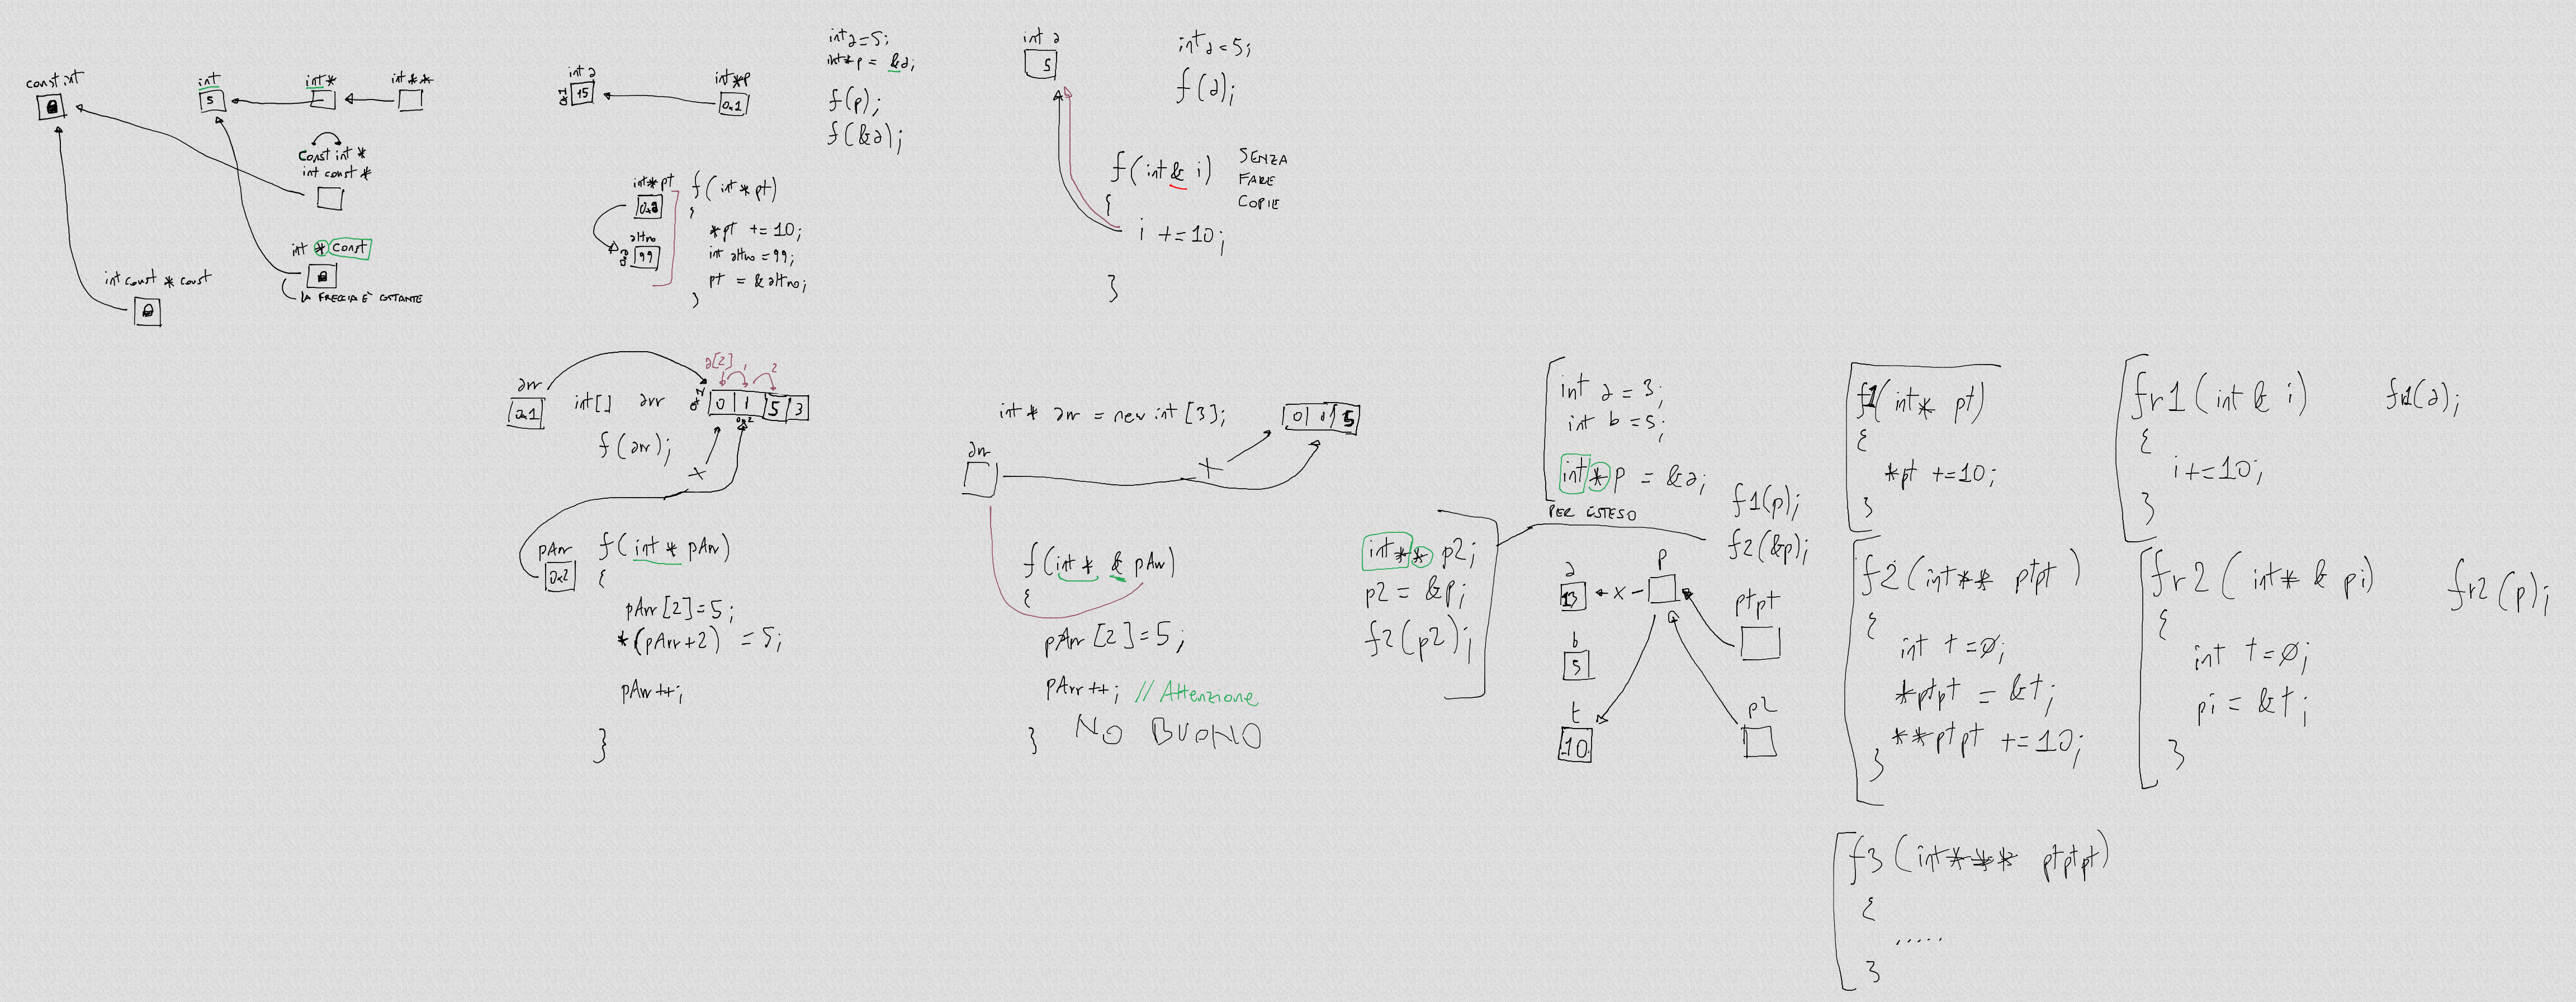 const int
int
5
int*
int**
const int*
int const *
int * const
LA FRECCIA È COSTANTE
int const * const
int a
0x1
15
int*p
0x1
int a=5;
int*p = &a;
f(p);
f(&a);
int*pt
altro
99
f(int*pt)
{
*pt += 10;
int altro=99;
pt = &altro;
}
int a
5
int a=5;
f(a);
f(int& i)
{
i +=10;
}
SENZA
FARE
COPIE
arr
0x1
int[] arr
f(arr);
a[2]
1
2
0 1 5 3
0x2
pArr
0x2
f(int* pArr)
{
pArr[2]=5;
*(pArr+2) = 5;
pArr++;
}
int* arr = new int[3];
0 1 5
arr
f(int* & pArr)
{
pArr[2]=5;
pArr++; // Attenzione
} NO BUONO
int** p2;
p2 = &p;
f2(p2);
int a = 3;
int b = 5;
int*p = &a;
PER ESTESO
f1(p);
f2(&p);
a
13
x
p
ptpt
b
5
t
10
p2
f1(int* pt)
{
*pt +=10;
}
f2(int** ptpt)
{
int t=0;
*ptpt = &t;
**ptpt +=10;
}
f3(int*** ptptpt)
{
.....
}
fr1(int& i)
{
i+=10;
}
fr1(a);
fr2(int* & pi)
{
int t=0;
pi = &t;
}
fr2(p);